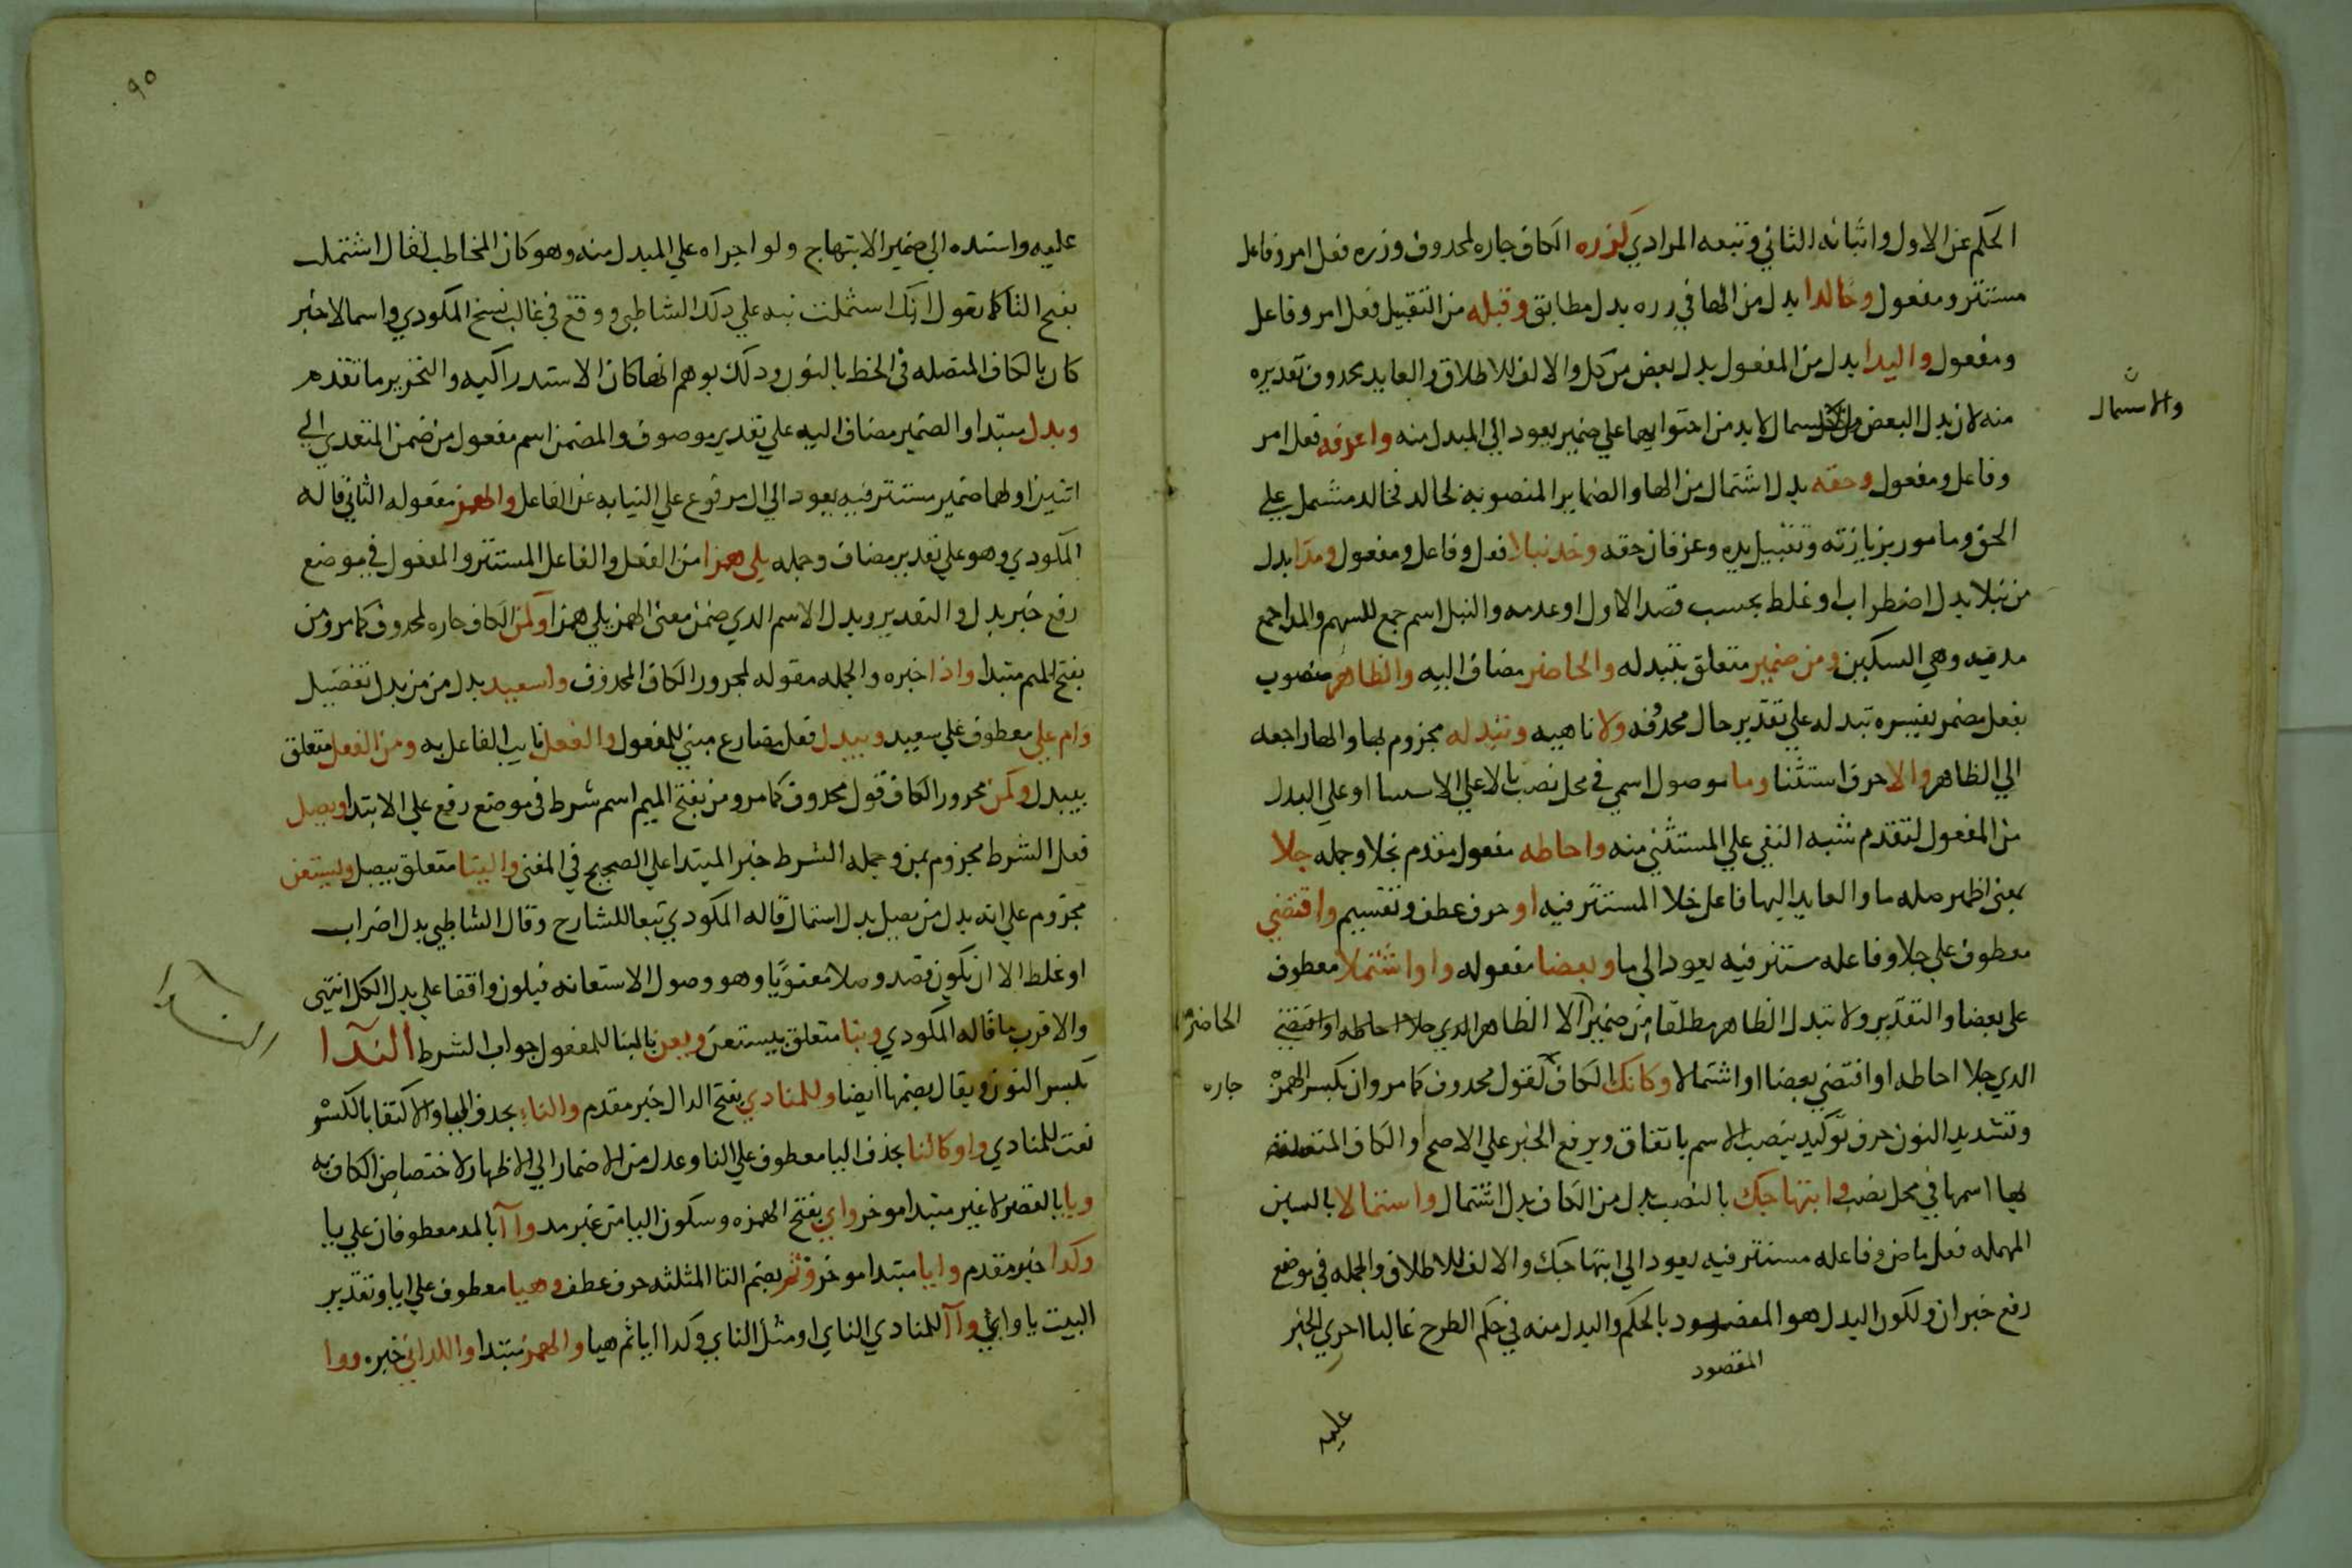 الحكم عن الاول واثباته الثاني وتبعه المرادي كزره الكاف جاره لمحذوف وزره فعل امر وفاعل
مستتر ومفعول وخالدا بدل من الها في زره بدل مطابق وقبله من التقبيل فعل امر وفاعل
ومفعول واليدا بدل من المفعول بدل بعض من كل والالف للاطلاق والعايد محدوف تقديره
منه لان بدل البعض لابد من احتوايهما علي ضمير يعود الي المبدل منه واعرفه فعل امر
والاستمال
وفاعل ومفعول وحقه بدل اشتمال من الها والضماير المنصوبه لخالد فخالد مشتمل علي
الحق ومامور بزيارته وتقبيل يده وعرفان حقه وخذ نبلا فعل وفاعل ومفعول ومدا بدل
من نبلا بدل اضطراب او غلط بحسب قصد الاول او عدمه والنبل اسم جمع للسهم والمدا جمع
مديه وهي السكين ومن ضمير متعلق بتبدله والحاضر مضاف اليه والظاهر منصوب
بفعل مضمر يفسره تبدله علي تقدير حال محذوفه ولا ناهيه وتبدله مجزوم بها والها راجعه
الي الظاهر والا حرف استثنا وما موصول اسمي في محل نصب بالا علي الاستثنا او علي البدل
من المفعول لتقدم شبه النفي علي المستثني منه واحاطه مفعول مقدم بجلا وجمله جلا
بمعني اظهر صله ما والعايد اليها فاعل جلا المستتر فيه او حرف عطف وتقسيم واقتضي
معطوف علي جلا وفاعله مستتر فيه يعود الي ما وبعضا مفعوله واو اشتملا معطوف
علي بعضا والتقدير ولا تبدل الظاهر مطلقا من ضمير الا الظاهر الذي جلا احاطه او اقتضي
الحاضر
الدي جلا احاطه او اقتضي بعضا او اشتمالا وكانك الكاف لقول محدوف كما مر وان بكسر الهمزة
جاره
وتشديد النون حرف توكيد ينصب الاسم باتفاق ويرفع الخبر علي الاصح والكاف المتصله
بها اسمها في محل نصب وابتهاجك بالنصب بدل من الكاف بدل اشتمال واستمالا بالسين
المهمله فعل ماض وفاعله مستتر فيه يعود الي ابتهاجك والالف للاطلاق والجمله في موضع
رفع خبر ان ولكون البدل هو المقصود بالحكم والمبدل منه في حكم الطرح غالبا اجري الخبر
المقصود
عليه
٩٥
عليه واسنده الي ضمير الابتهاج ولو اجراه علي المبدل منه وهو كاف المخاطب لقال اشتملت
بفتح التا كما تقول انك اشتملت نبه علي دلك الشاطبي ووقع في غالب نسخ المكودي واسما لا خبر
كان بالكاف المتصله في الخط بالنون ودلك يوهم انها كان الاستدراكيه والتحرير ما تقدم
وبدل مبتدا والضمير مضاف اليه علي تقدير موصوف والمضمن اسم مفعول من ضمن المتعدي الي
اثنين اولهما ضمير مستتر فيه يعود الي ال مرفوع علي النيابه عن الفاعل والهمز مفعوله الثاني قاله
المكودي وهو علي تقدير مضاف وجمله يلي همزا من الفعل والفاعل المستتر والمفعول في موضع
رفع خبر بدل والتقدير وبدل الاسم الدي ضمن معني الهمز يلي همزا وكمن الكاف جاره لمحدوف كما مر ومن
بفتح الميم مبتدا واذا خبره والجمله مقوله لمجرور الكاف المحذوف واسعيد بدل من من بدل تفصيل
وام علي معطوف علي سعيد ويبدل فعل مضارع مبني للمفعول والفعل نايب الفاعل به ومن الفعل متعلق
بيبدل وكمن مجرور الكاف قول محدوف كما مر ومن بفتح الميم اسم شرط في موضع رفع علي الابتدا ويصل
فعل الشرط مجزوم بمن وجمله الشرط خبر المبتدا علي الصحيح في المغني والينا متعلق بيصل ويستعن
مجزوم علي انه بدل من يصل بدل استمال قاله المكودي تبعا للشارح وقال الشاطبي بدل اضراب
او غلط الا ان يكون قصد وصلا معنويا وهو وصول الاستعانه فيكون واقفا علي بدل الكل انتهي
والاقرب ما قاله المكودي وبنا متعلق بيستعن ويعن بالبنا للمفعول جواب الشرط الندا
الندا
بكسر النون ويقال بضمها ايضا وللمنادي بفتح الدال خبر مقدم والناء بحدف اليا والاكتفا بالكسره
نعت للمنادي واو كالنا بحذف اليا معطوف علي النا وعدل من الاضمار الي الاظهار لاختصاص الكاف به
ويا بالقصر لا غير مبتدا موخر واي بفتح الهمزه وسكون اليا من غير مد وآ آ بالمد معطوفان علي يا
وكدا خبر مقدم وايا مبتدا موخر وثم بضم الثا المثلثه حرف عطف وهيا معطوف علي ايا وتقدير
البيت يا واي وآ آ للمنادي الناي او مثل الناي وكدا ايا ثم هيا والهمز مبتدا واللداني خبره ووا